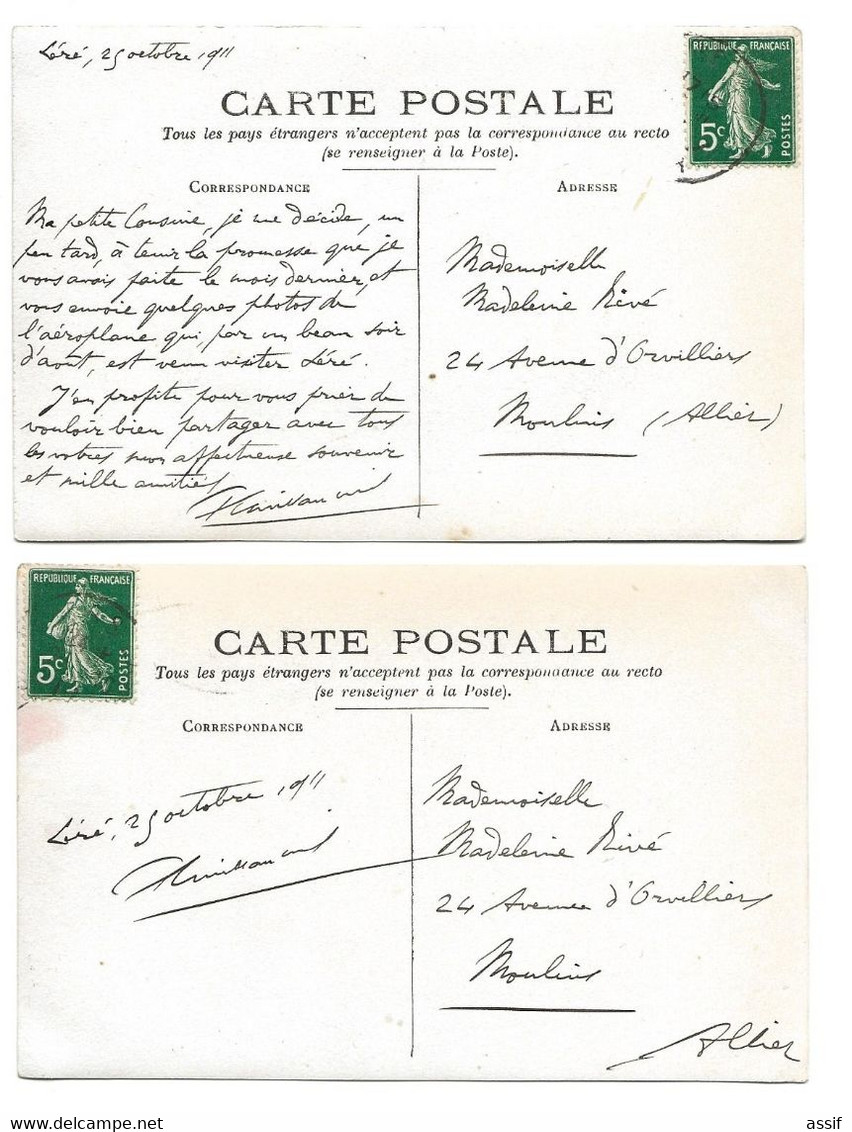 Léré, 25 octobre 1911
RÉPUBLIQUE FRANÇAISE
5c
POSTES
CARTE POSTALE
Tous les pays étrangers n'acceptent pas la correspondance au recto
(se renseigner à la Poste).
CORRESPONDANCE
ADRESSE
Ma petite Cousine, je me décide, un
peu tard, à tenir la promesse que je
vous avais faite le mois dernier, et
vous envoie quelques photos de
l'aéroplane qui, par un beau soir
d'août, est venu visiter Léré.
J'en profite pour vous prier de
vouloir bien partager avec tous
les vôtres mon affectueuse souvenir
et mille amitiés
Mademoiselle
Madeleine Rivé
24 Avenue d'Orvilliers
Moulins (Allier)
RÉPUBLIQUE FRANÇAISE
5c
POSTES
CARTE POSTALE
Tous les pays étrangers n'acceptent pas la correspondance au recto
(se renseigner à la Poste).
CORRESPONDANCE
ADRESSE
Léré, 25 octobre 1911
Mademoiselle
Madeleine Rivé
24 Avenue d'Orvilliers
Moulins
Allier
www.delcampe.net
assif